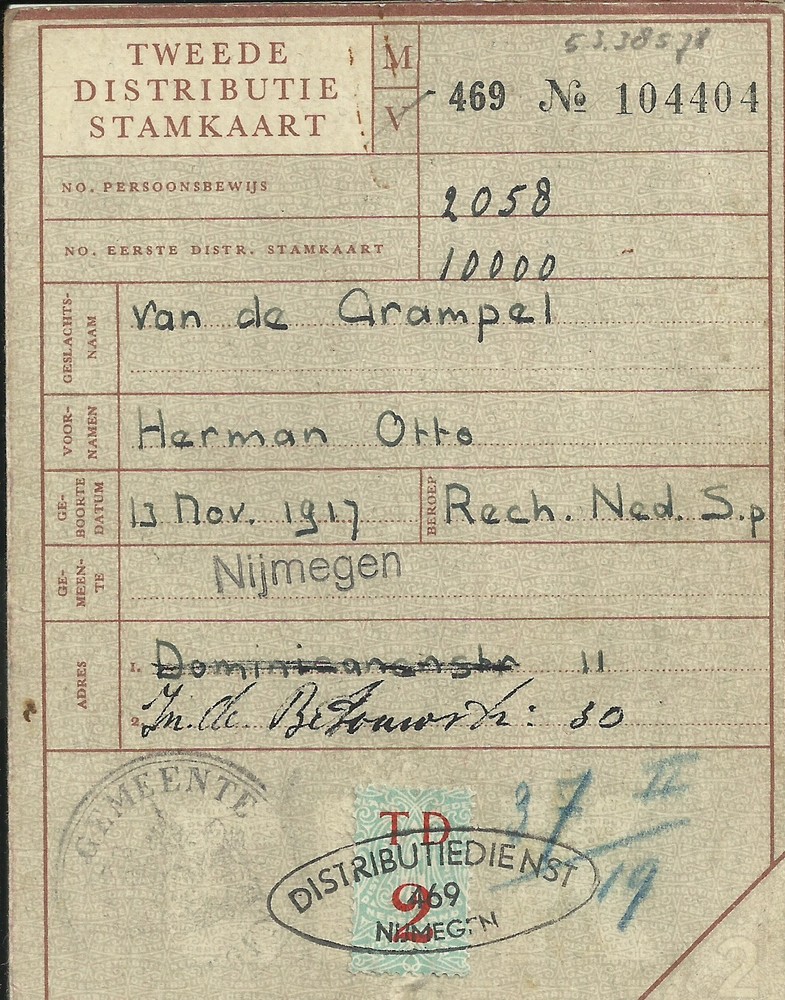 53.38578
TWEEDE
DISTRIBUTIE
STAMKAART
M
V
469 № 104404
NO. PERSOONSBEWIJS
2058
NO. EERSTE DISTR. STAMKAART
10000
GESLACHTS-
NAAM
van de Grampel
VOOR-
NAMEN
Herman Otto
GE-
BOORTE
DATUM
13 Nov. 1917
BEROEP
Rech. Ned. S.p
GE-
MEEN-
TE
Nijmegen
ADRES
1. Dominicanenstr 11
2. In de Betouwstr: 30
GEMEENTE
TD
2
DISTRIBUTIEDIENST
469
NIJMEGEN
37 II
19
2